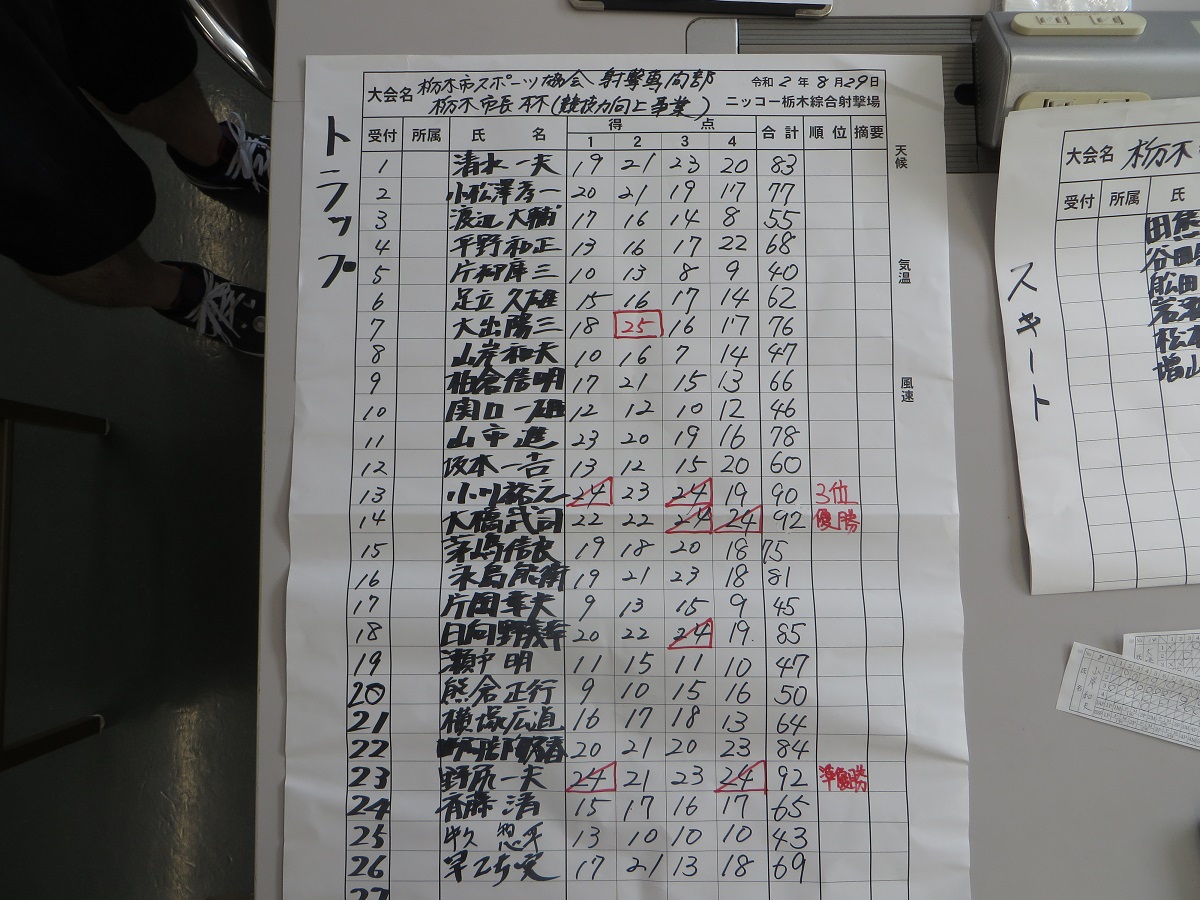 大会名 栃木市スポーツ協会 射撃専門部 令和 2 年 8 月 29 日
栃木市長杯(競技力向上事業) ニッコー栃木綜合射撃場
トラップ
受付 所属 氏 名 得 点 合計 順位 摘要
1 2 3 4
1 清水一夫 19 21 23 20 83
2 小松澤彦一 20 21 19 17 77
3 渡辺大輔 17 16 14 8 55
4 平野和正 13 16 17 22 68
5 片柳庫三 10 13 8 9 40
6 足立久雄 15 16 17 14 62
7 大出陽三 18 25 16 17 76
8 山岸和夫 10 16 7 14 47
9 柏倉信明 17 21 15 13 66
10 関口一雄 12 12 10 12 46
11 山市進 23 20 19 16 78
12 坂本一吉 13 12 15 20 60
13 小川 24 23 24 19 90 3位
14 大橋武司 22 22 24 24 92 優勝
15 茅嶋信良 19 18 20 18 75
16 永島 19 21 23 18 81
17 片岡幸夫 9 13 15 9 45
18 日向野義幸 20 22 24 19 85
19 瀬中明 11 15 11 10 47
20 熊倉正行 9 10 15 16 50
21 横塚広道 16 17 18 13 64
22 20 21 20 23 84
23 野尻一夫 24 21 23 24 92 準優勝
24 斉藤清 15 17 16 17 65
25 13 10 10 10 43
26 17 21 13 18 69
27
天候
気温
風速
大会名 栃木
受付 所属 氏
スキート
田熊
谷田
舩田
若
松本
増山